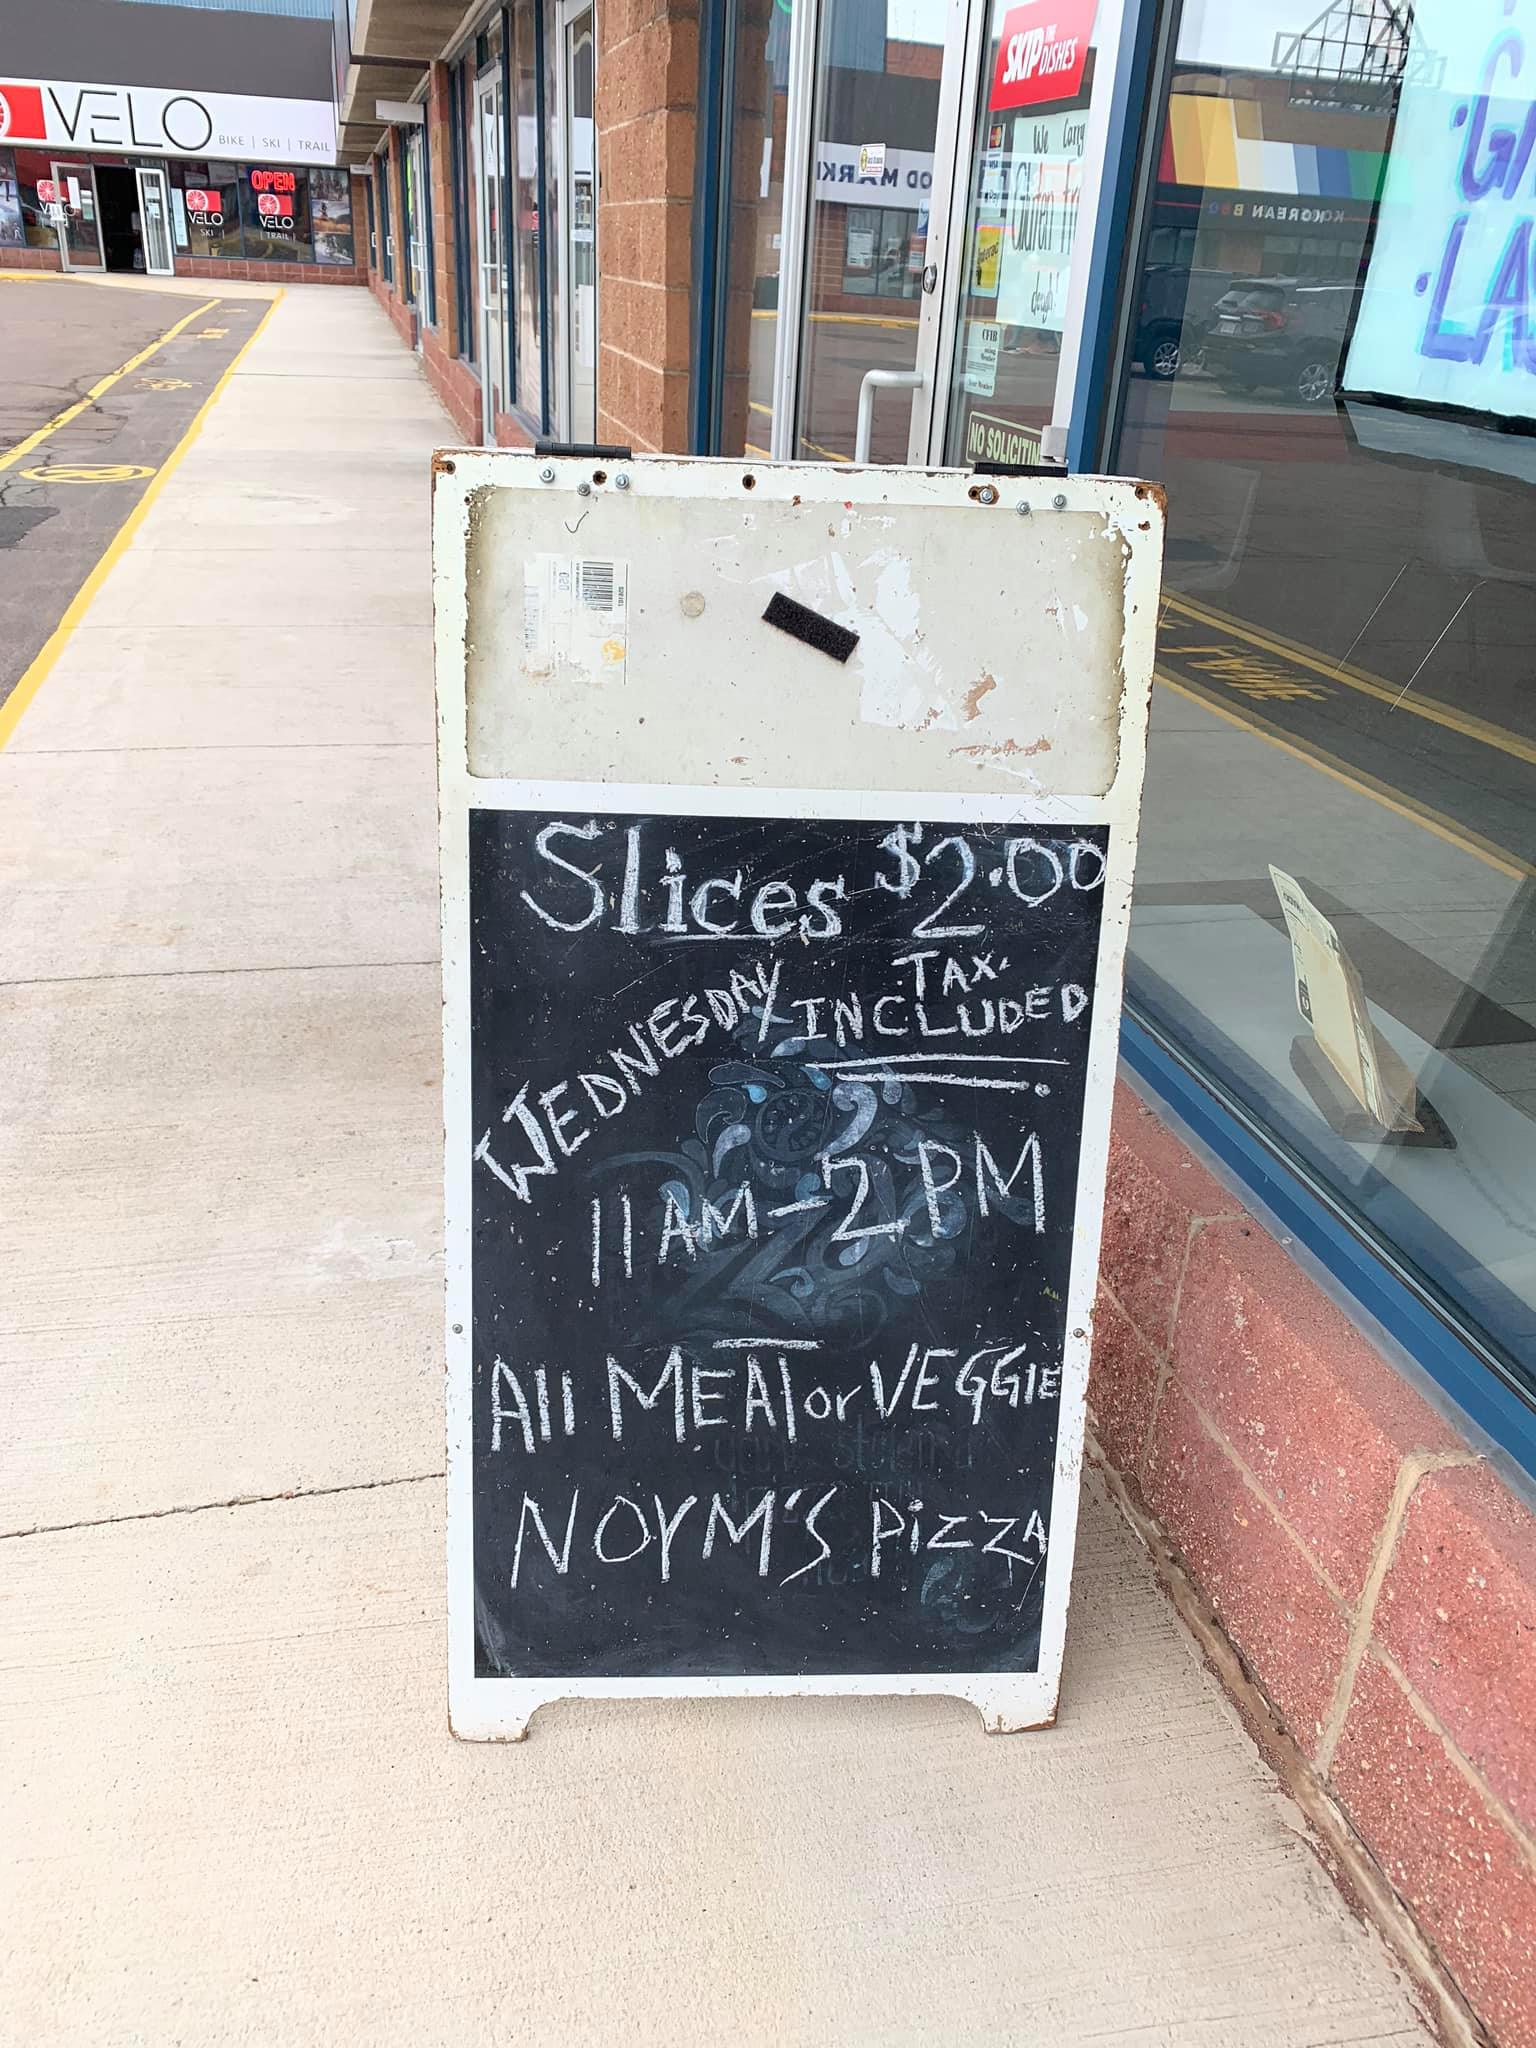 VELO
BIKE | SKI | TRAIL
OPEN
VELO
VELO
SKI
VELO
TRAIL
SKIP THE DISHES
We Carry
Gluten
dough!
CFIB
NO SOLICITIN
OD MARK
KOREAN BBQ
Slices $2.00
TAX
INCLUDED
WEDNESDAY
11AM-2PM
All MEAT or VEGGIE
NORM'S PiZZA